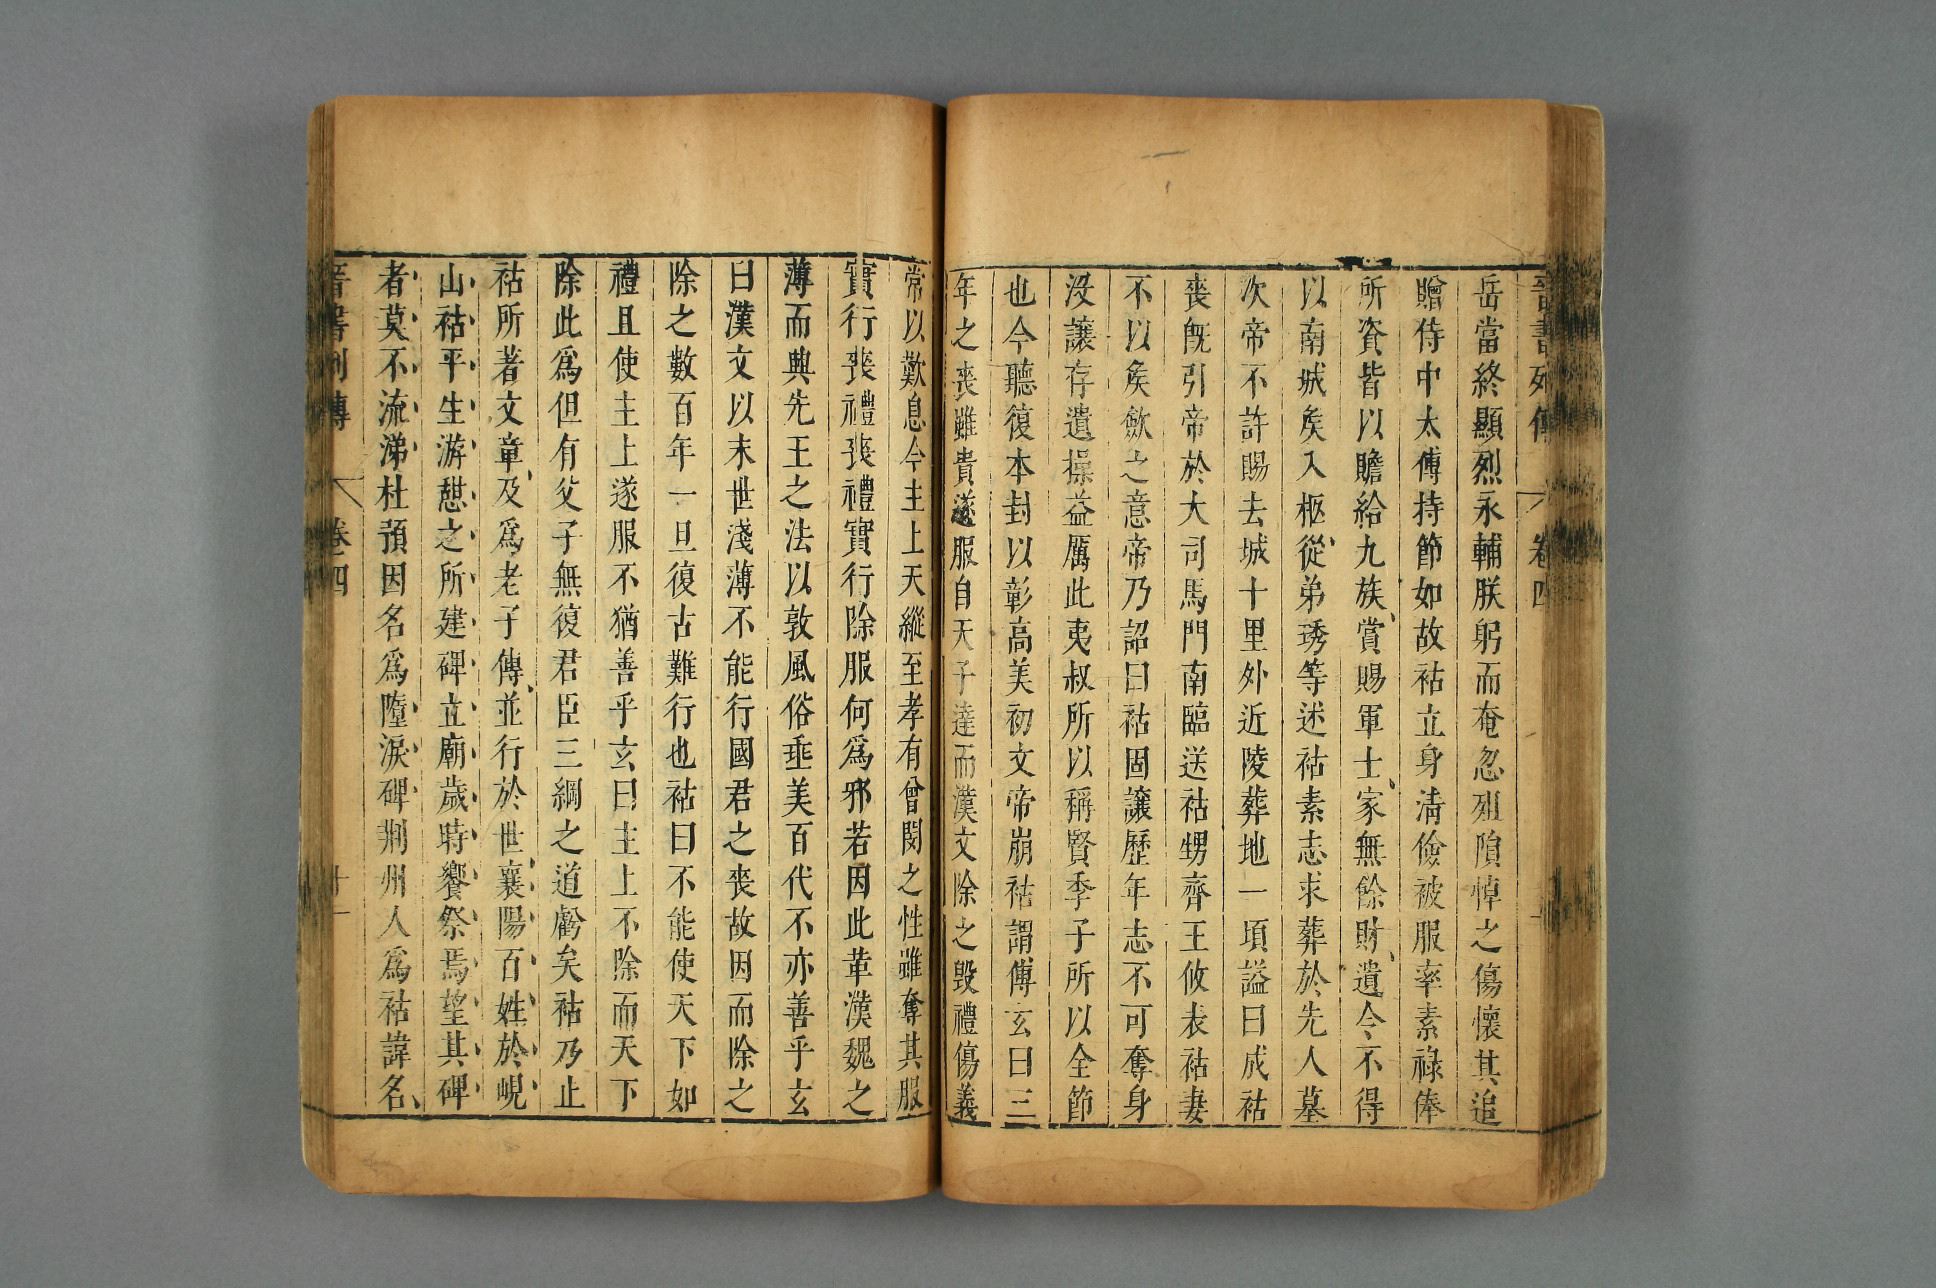 晉書列傳 卷四
岳當終顯烈永輔朕躬而奄忽殂隕悼之傷懷其追
贈侍中太傅持節如故祜立身清儉被服率素祿俸
所資皆以贍給九族賞賜軍士家無餘財遺令不得
以南城矦入柩從弟琇等述祜素志求葬於先人墓
次帝不許賜去城十里外近陵葬地一頃謚曰成祜
喪旣引帝於大司馬門南臨送祜甥齊王攸表祜妻
不以矦斂之意帝乃詔曰祜固讓歷年志不可奪身
沒讓存遺操益厲此夷叔所以稱賢季子所以全節
也今聽復本封以彰高美初文帝崩祜謂傅玄曰三
年之喪雖貴遂服自天子達而漢文除之毀禮傷義
常以歎息今主上天縱至孝有曾閔之性雖奪其服
實行喪禮喪禮實行除服何爲邪若因此革漢魏之
薄而興先王之法以敦風俗垂美百代不亦善乎玄
曰漢文以末世淺薄不能行國君之喪故因而除之
除之數百年一旦復古難行也祜曰不能使天下如
禮且使主上遂服不猶善乎玄曰主上不除而天下
除此爲但有父子無復君臣三綱之道虧矣祜乃止
祜所著文章及爲老子傳並行於世襄陽百姓於峴
山祜平生游憇之所建碑立廟歲時饗祭焉望其碑
者莫不流涕杜預因名爲墮淚碑荆州人爲祜諱名
晉書列傳 卷四 十一